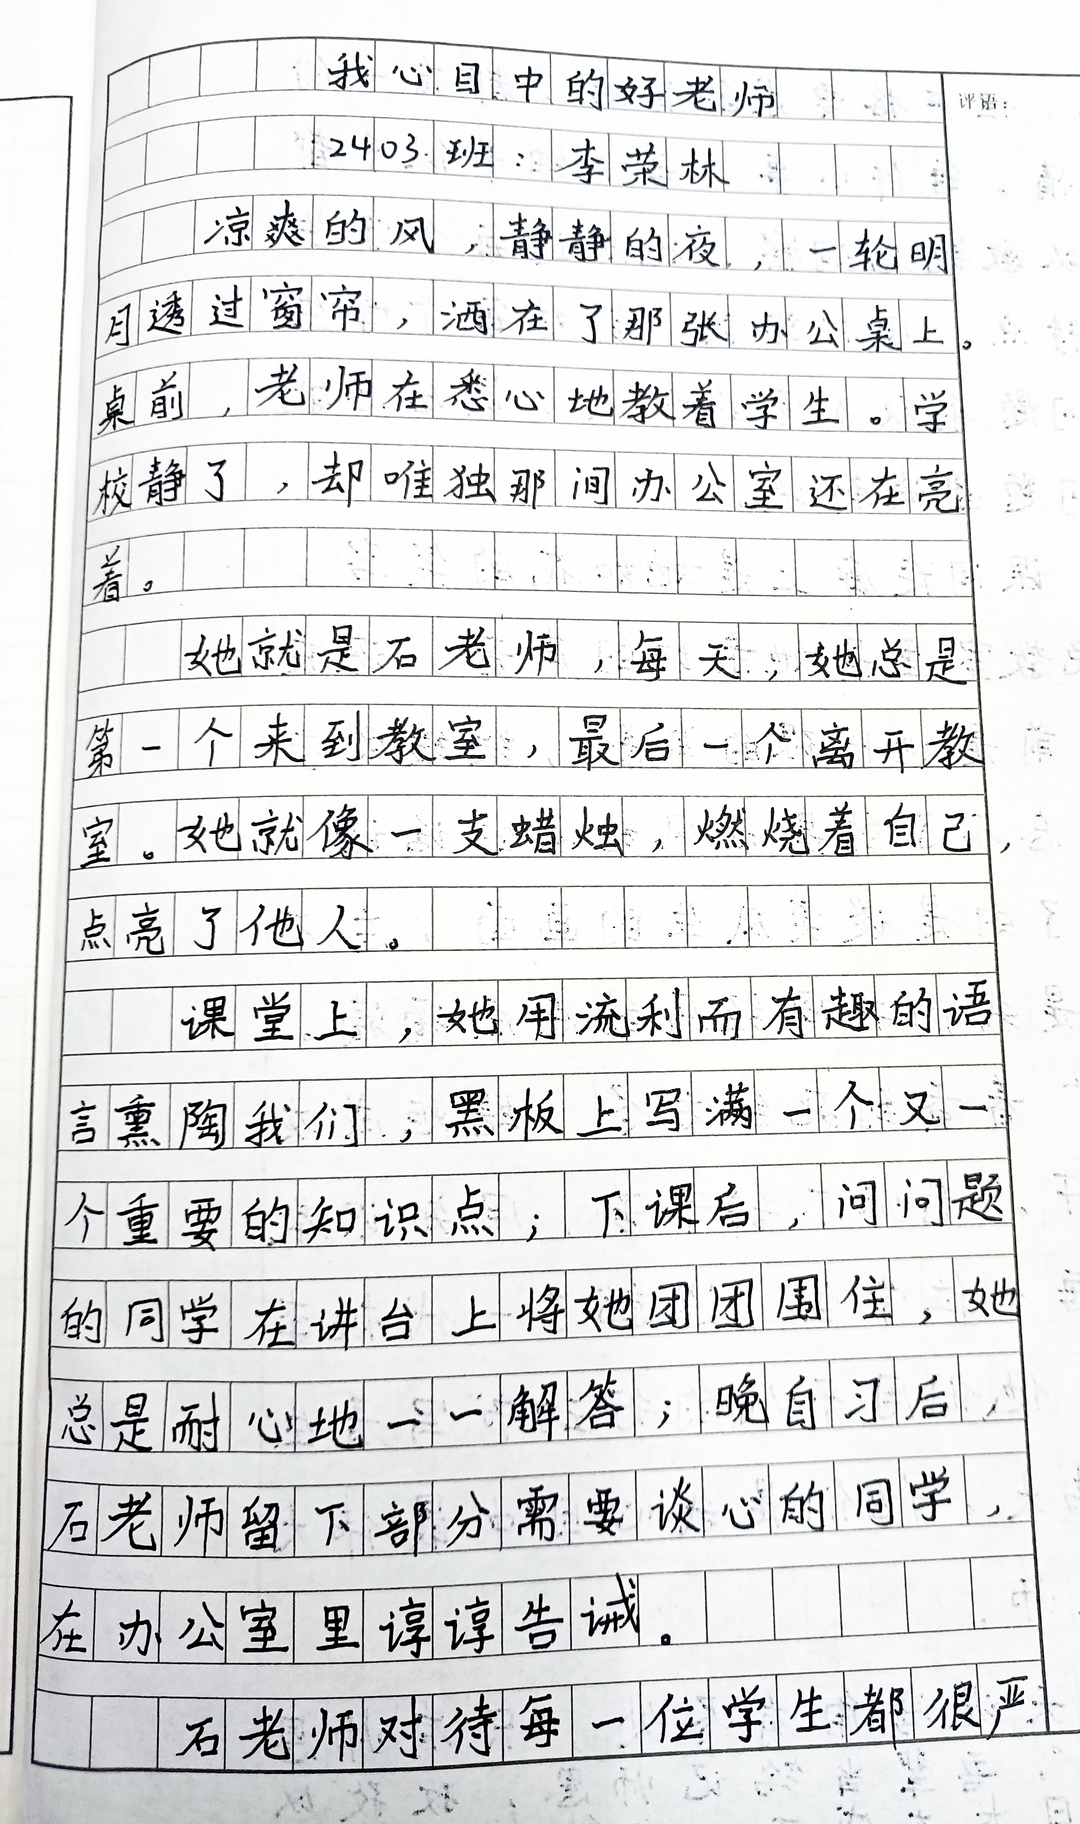 我心目中的好老师
评语：
2403班：李荣林
凉爽的风，静静的夜，一轮明
月透过窗帘，洒在了那张办公桌上。
桌前，老师在悉心地教着学生。学
校静了，却唯独那间办公室还在亮
着。
她就是石老师，每天，她总是
第一个来到教室，最后一个离开教
室。她就像一支蜡烛，燃烧着自己，
点亮了他人。
课堂上，她用流利而有趣的语
言熏陶我们，黑板上写满一个又一
个重要的知识点；下课后，问问题
的同学在讲台上将她团团围住，她
总是耐心地一一解答；晚自习后，
石老师留下部分需要谈心的同学，
在办公室里谆谆告诫。
石老师对待每一位学生都很严